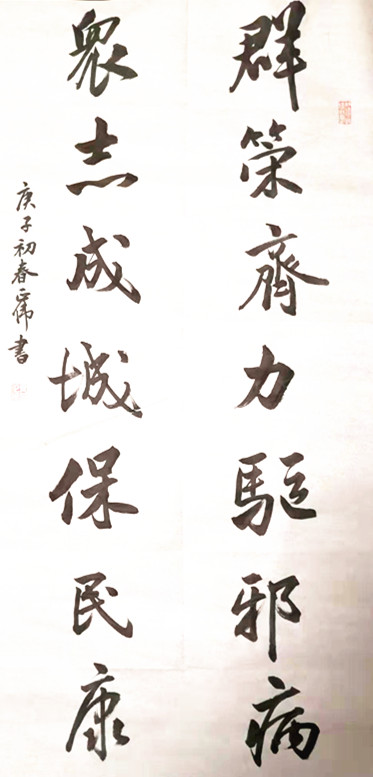 群策齊力駈邪病
衆志成城保民康
庚子初春正伟書